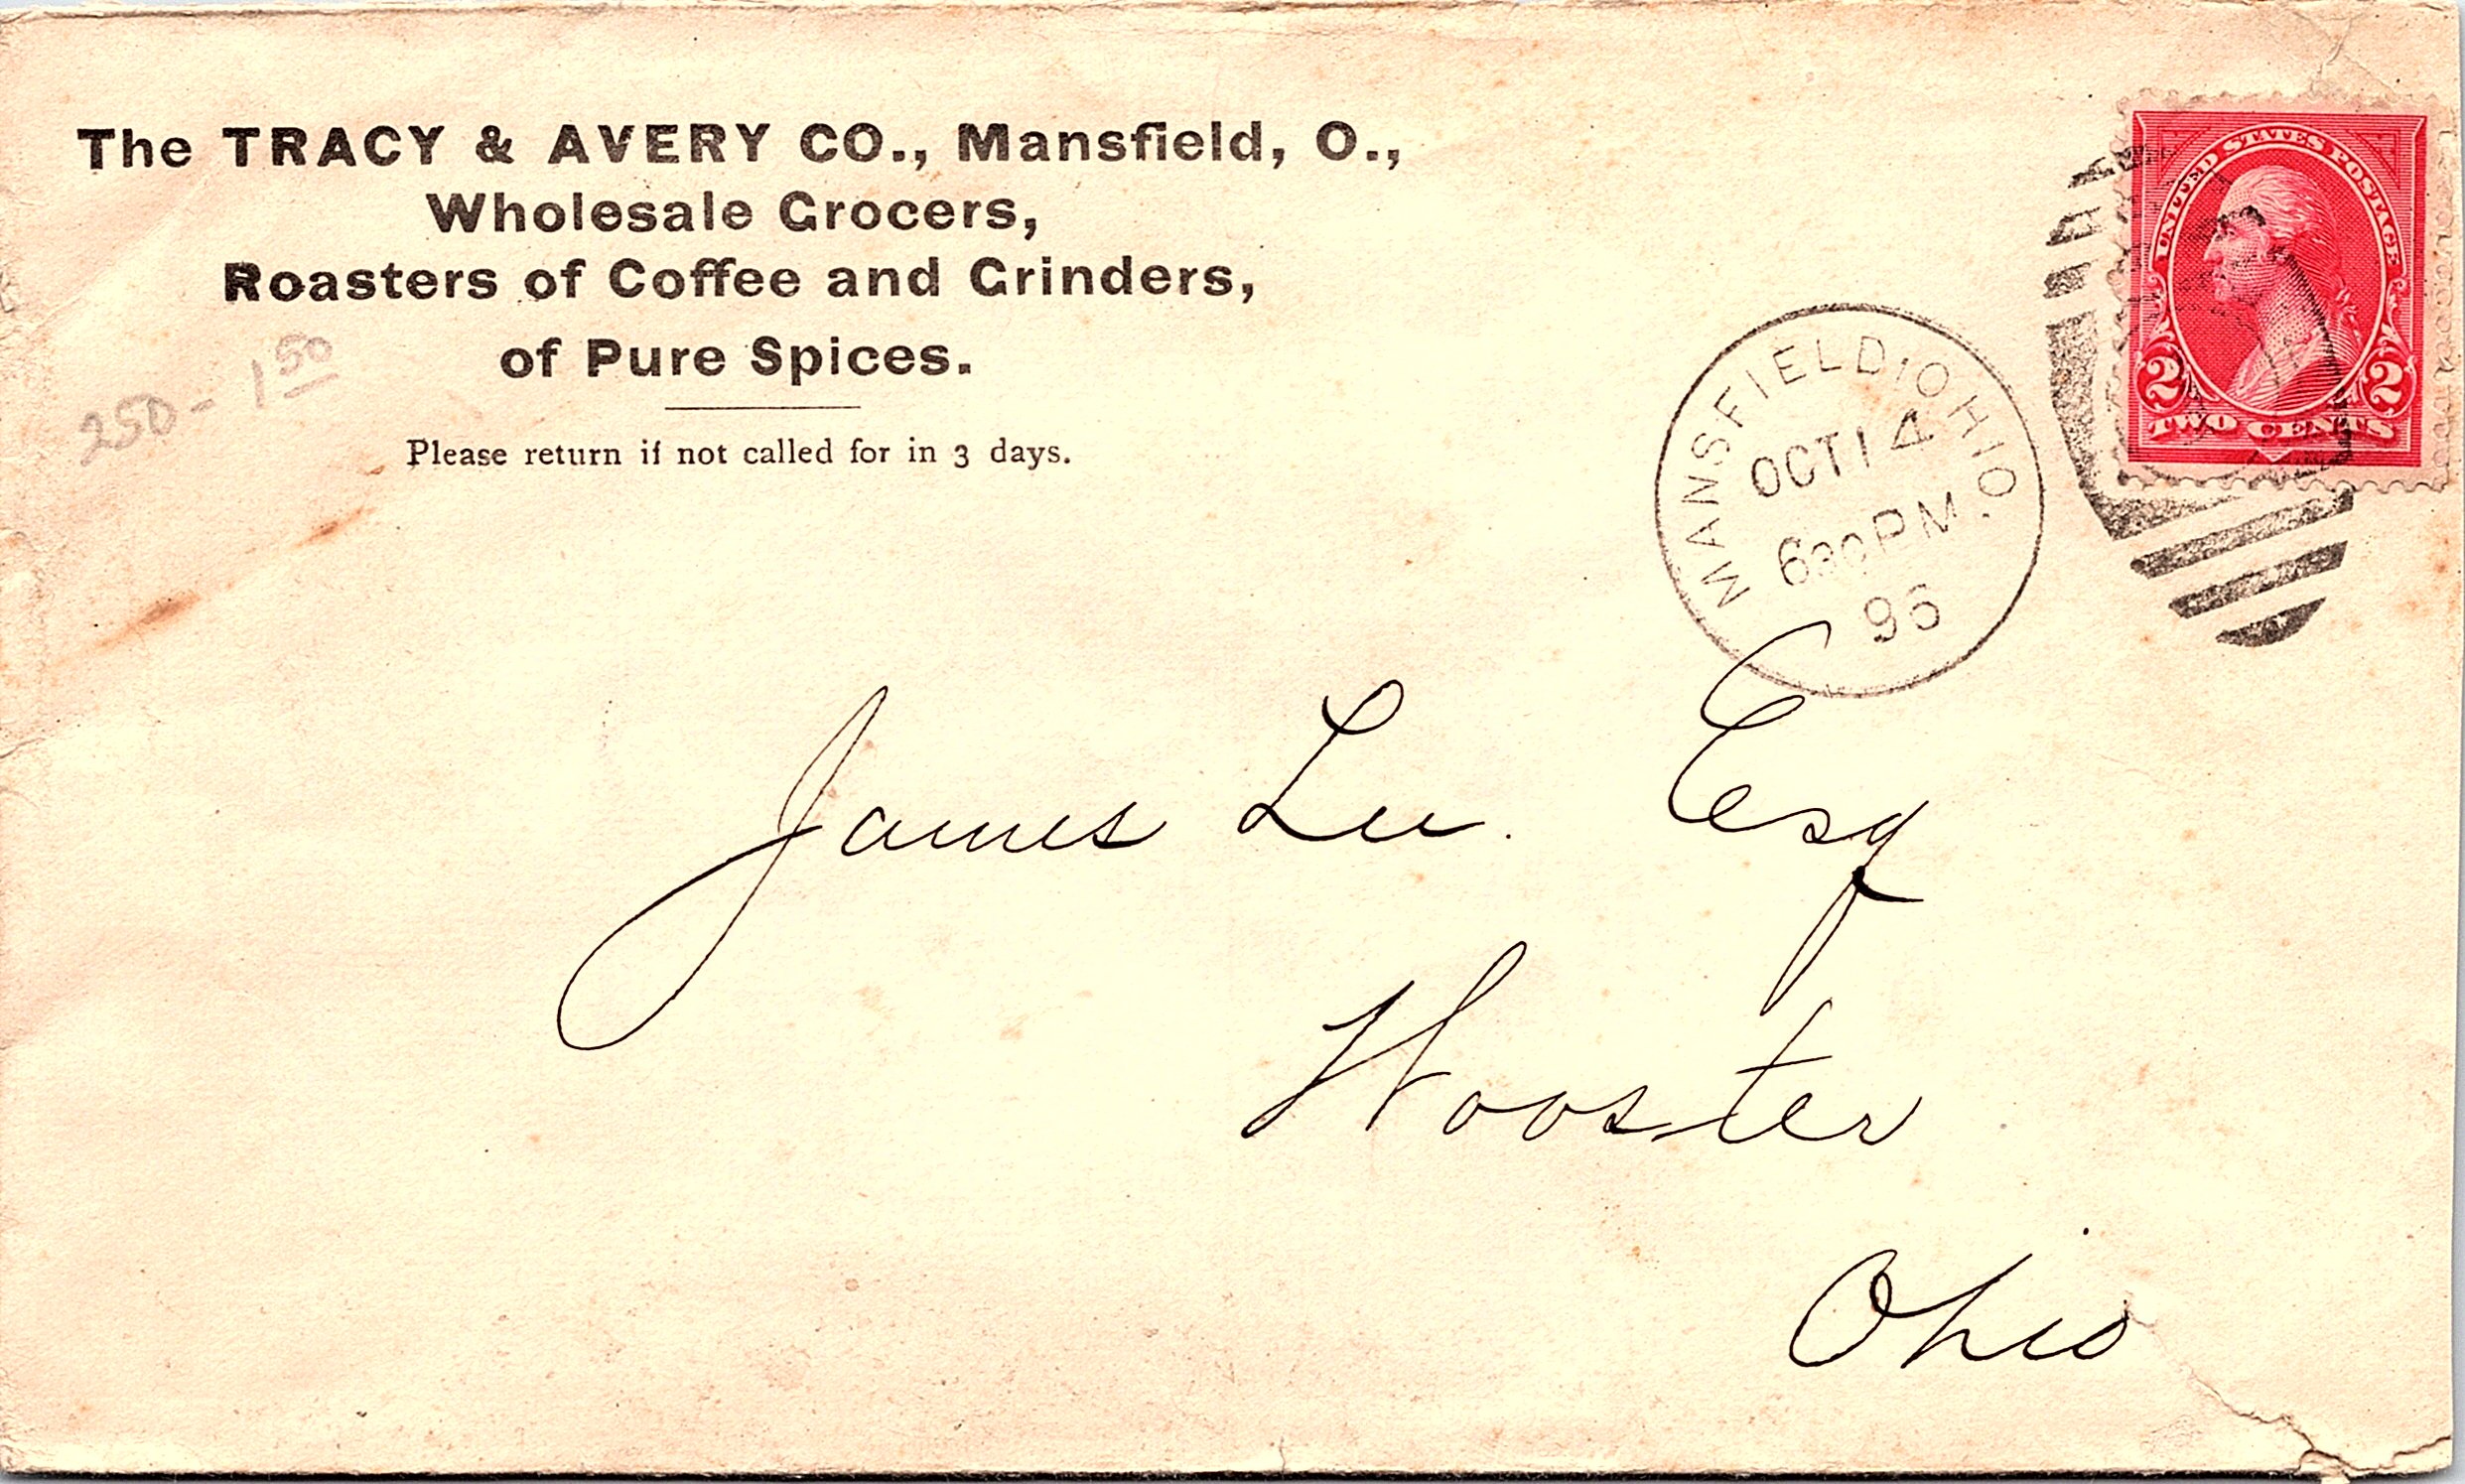 The TRACY & AVERY CO., Mansfield, O.,
Wholesale Grocers,
Roasters of Coffee and Grinders,
of Pure Spices.
250 - 1 50
Please return if not called for in 3 days.
UNITED STATES POSTAGE
2 2
TWO CENTS
MANSFIELD, OHIO.
OCT 14
630 PM
96
James Lee. Esq
Wooster
Ohio